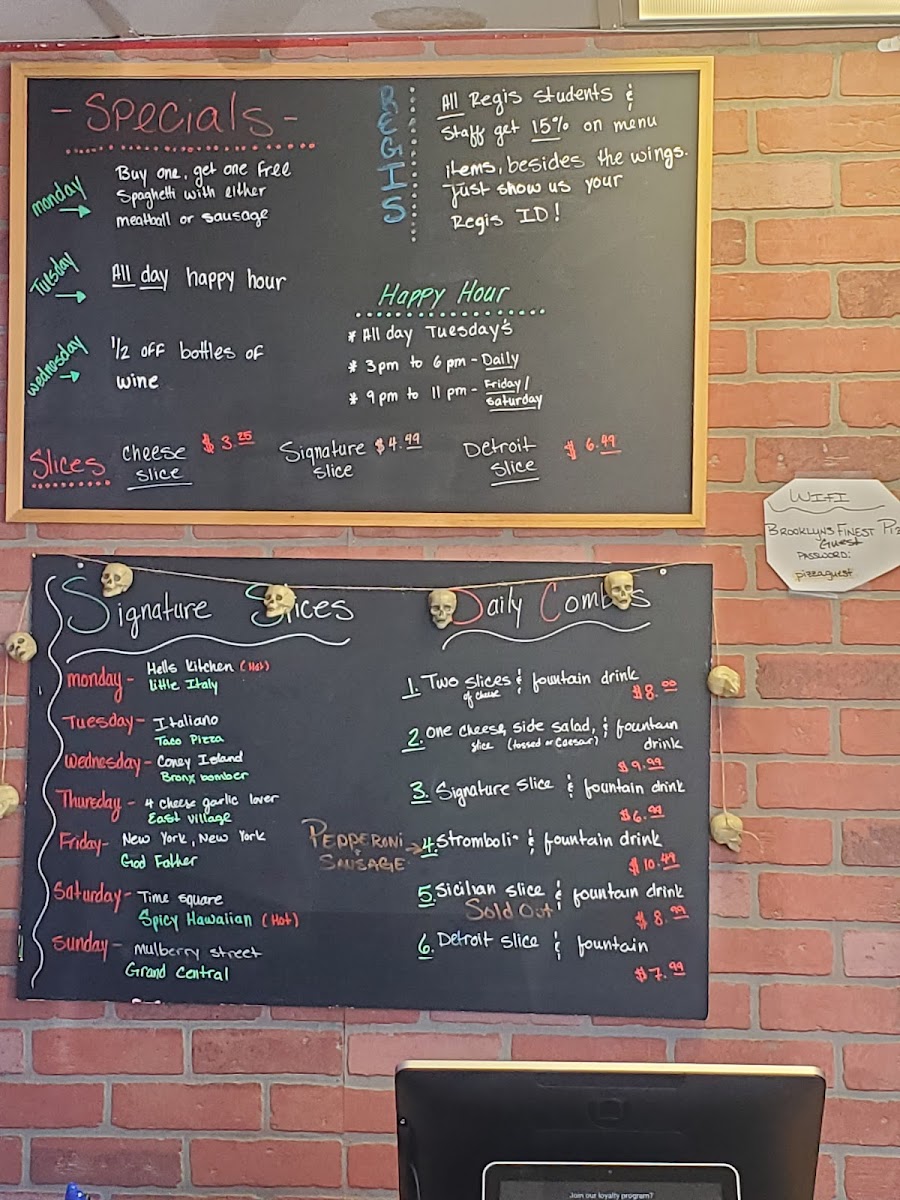 - Specials -
monday
Buy one, get one free
Spaghetti with either
meatball or sausage
Tuesday
All day happy hour
wednesday
1/2 off bottles of
wine
REGIS
All Regis students &
Staff get 15% on menu
items, besides the wings.
Just show us your
Regis ID!
Happy Hour
* All day Tuesday's
* 3pm to 6pm - Daily
* 9pm to 11pm - Friday/
Saturday
Slices
cheese
slice
$3.25
Signature
slice
$4.99
Detroit
slice
$6.49
WIFI
BROOKLYNS FINEST
Guest
PASSWORD:
pizzaguest
Signature Slices
monday - Hells Kitchen (Hot)
little Italy
Tuesday - Italiano
Taco Pizza
Wednesday - Coney Island
Bronx bomber
Thursday - 4 cheese garlic lover
East village
Friday - New York, New York
God Father
Saturday - Time square
Spicy Hawaiian (Hot)
Sunday - Mulberry street
Grand Central
Daily Combos
1. Two slices & fountain drink
of cheese
$8.00
2. One cheese, side salad, & fountain
slice (tossed or Caesar) drink
$9.99
3. Signature slice & fountain drink
$6.99
PEPPERONI
&
SAUSAGE
4. Stromboli & fountain drink
$10.49
5. Sicilian slice & fountain drink
Sold Out
$8.99
6. Detroit slice & fountain
$7.99
Join our loyalty program?